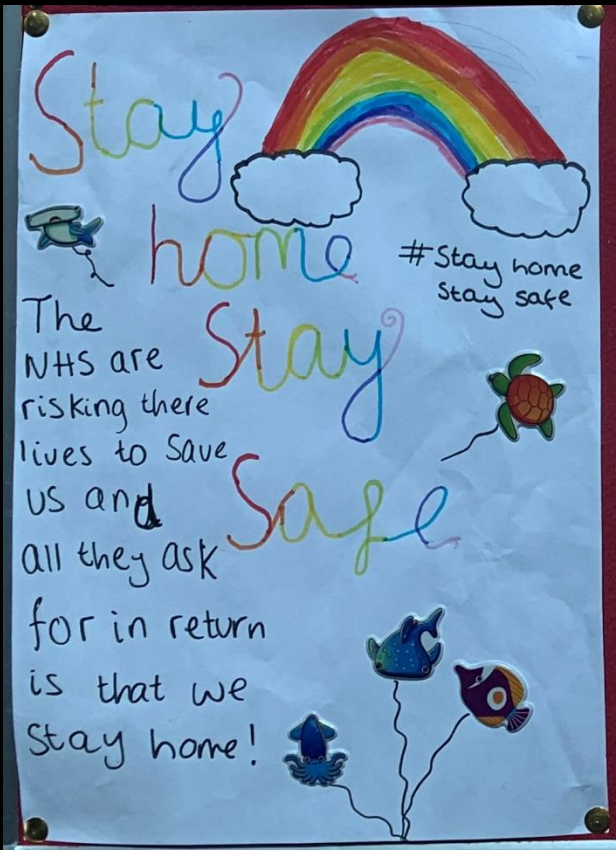 Stay
home
Stay
Safe
#Stay home
Stay safe
The
NHS are
risking there
lives to save
us and
all they ask
for in return
is that we
Stay home!